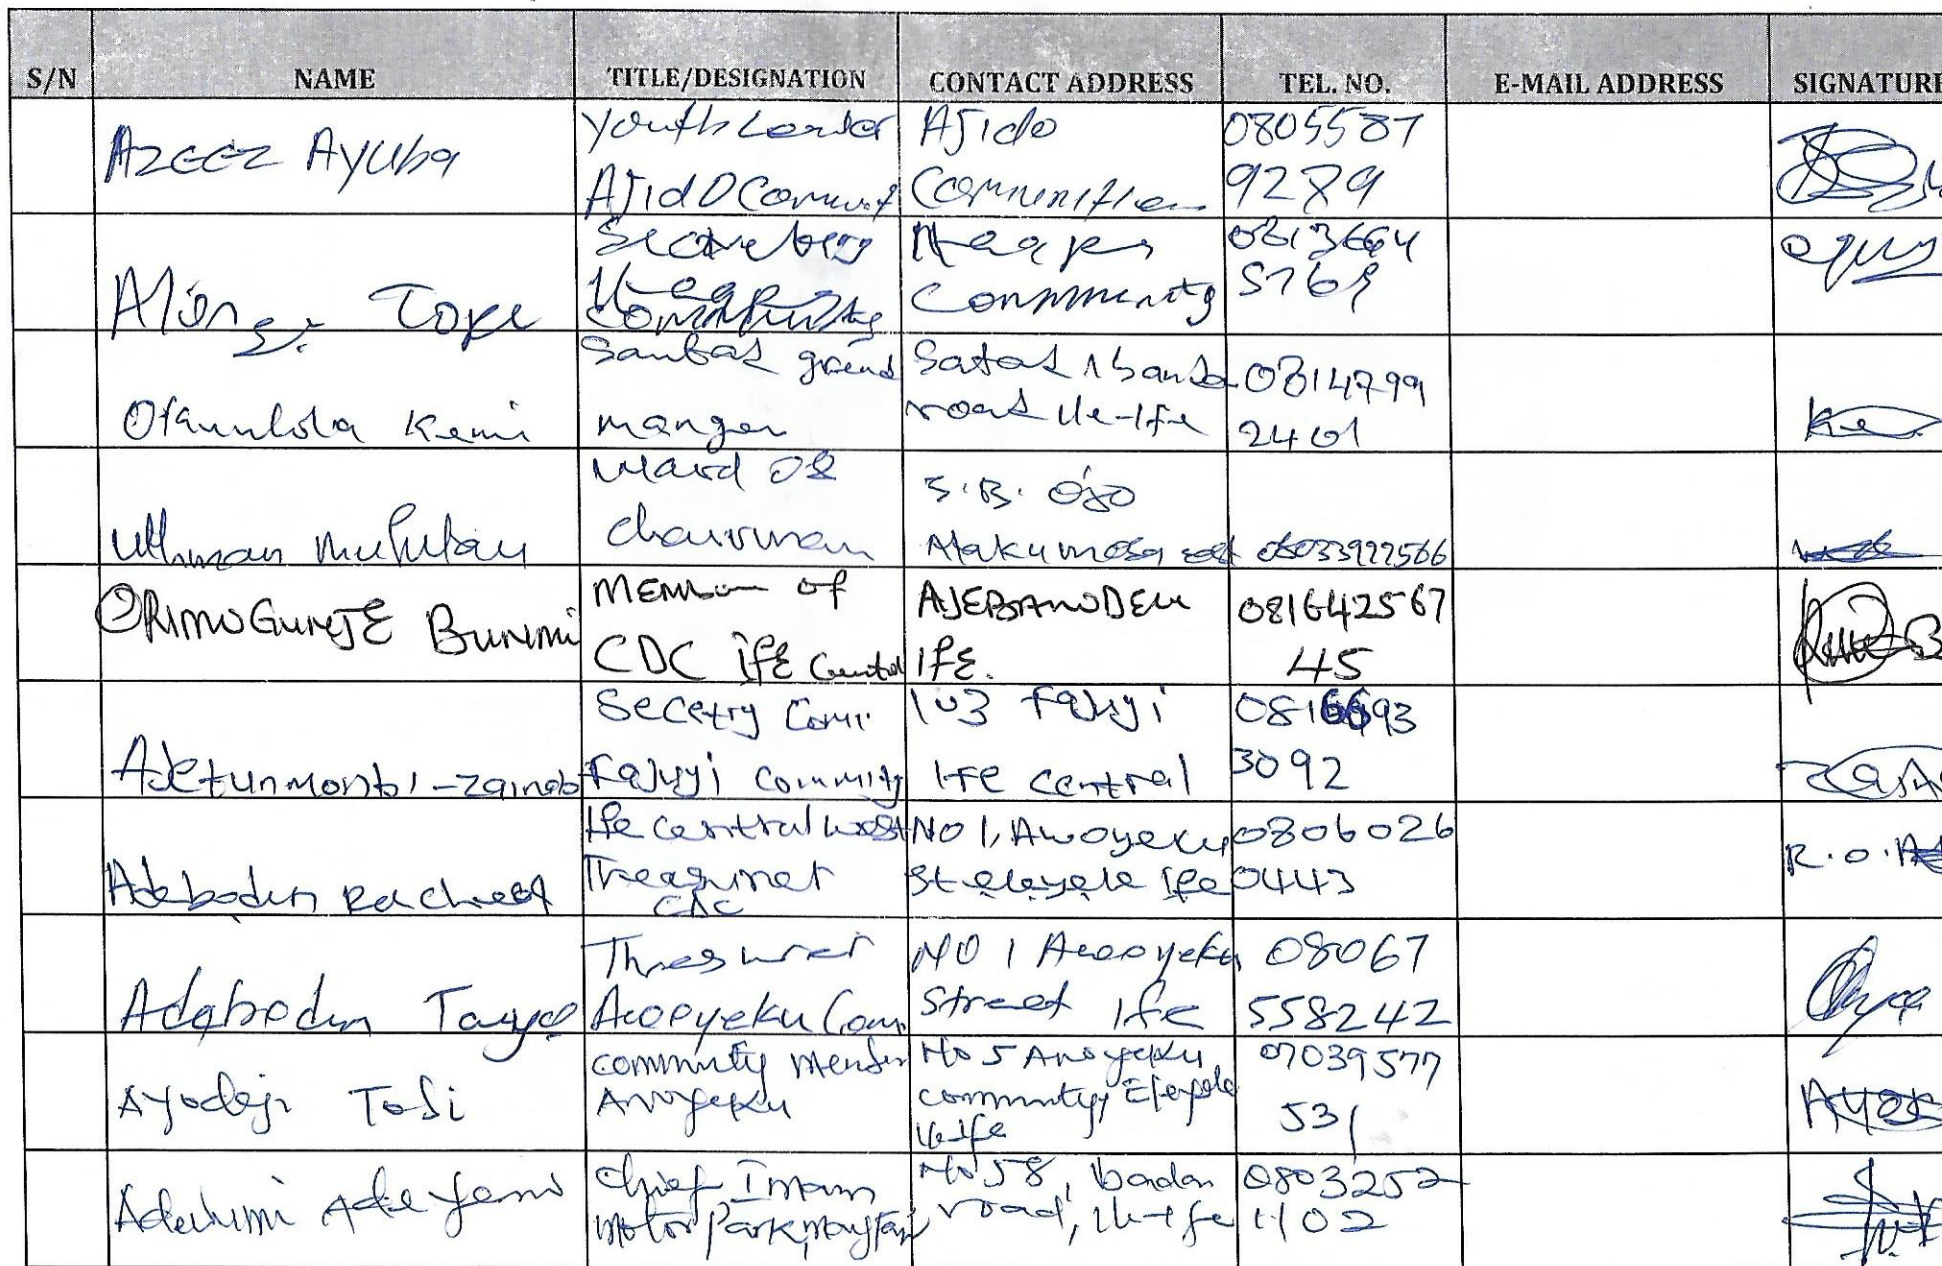 S/N NAME TITLE/DESIGNATION CONTACT ADDRESS TEL. NO. E-MAIL ADDRESS SIGNATURE
Azeez Ayuba
Youth Leader
Ajido Commut
Ajido
Communities
0805587
9289
Tope
Community
Community
Kemi
manger
road Ile-Ife
0814799
2401
Uthman
Ward 08
Chairman
S.B. Ojo
Atakumosa
ORIMOGUNJE Bunmi
Member of
CDC IFE Central
IFE.
081642567
45
Adetunmonbi-Zainab
Secetry Comi
Fajuyi Commity
103 Fajuyi
Ife Central
0816693
3092
Adebodun
Ife Central West
Treasurer
CDC
NO 1, Awoyeku
St eleyele Ife
0806026
0443
R.O.
Adebodun Tayo
Thresurer
Awoyeku Com
NO 1 Awoyeku
Street Ife
08067
558242
Ayodeji Tosi
Commnity Member
Awoyeku
No 5 Awoyeku
commnity, Eleyele
Ile-Ife
07039577
531
Adeyemi
Chief Imam
Motor Park, Mayfair
No 58, Ibadan
road, Ile-Ife
0803252
1102